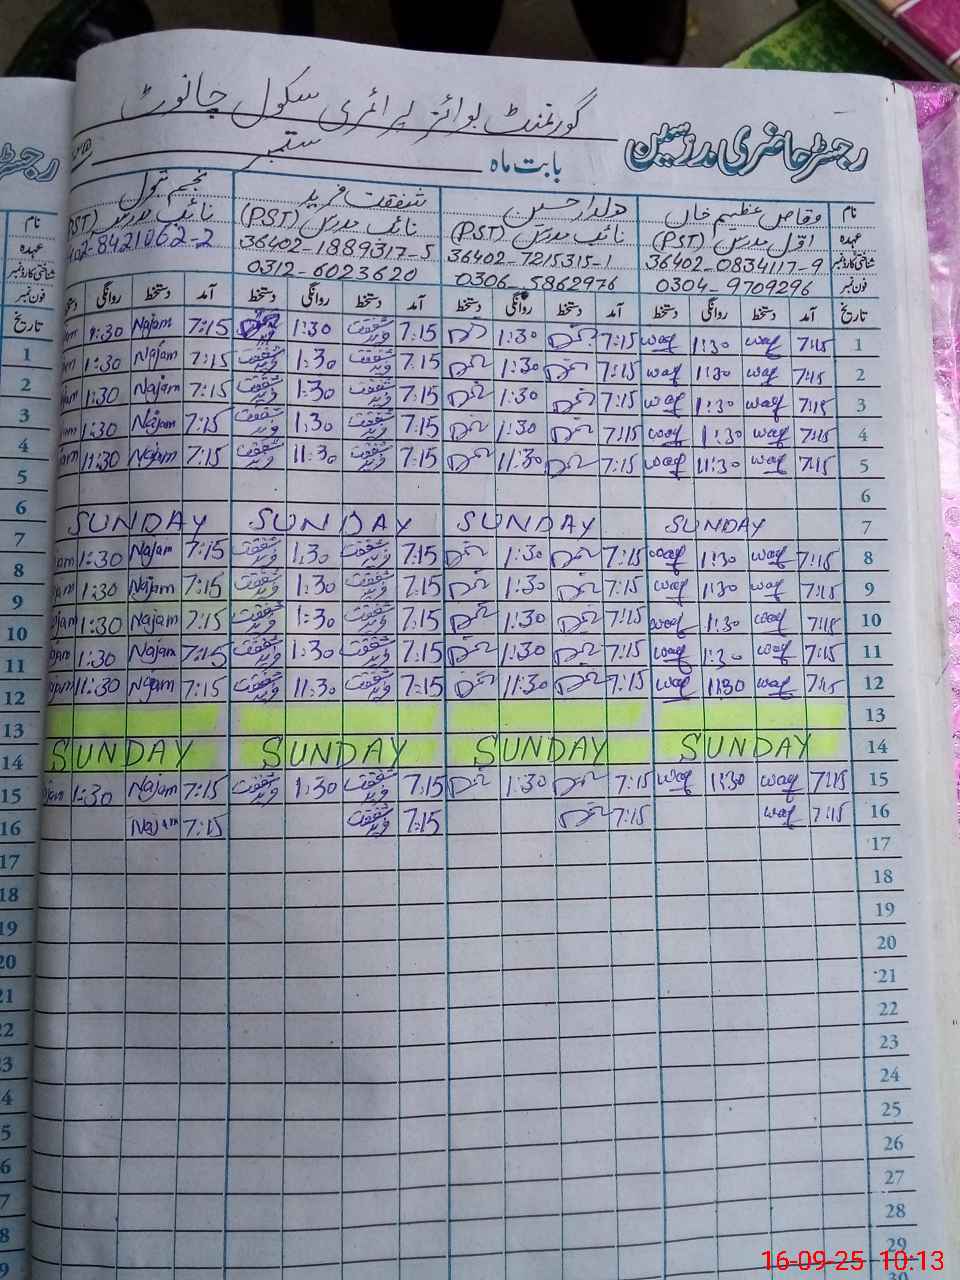 گورنمنٹ بوائز پرائمری سکول چانوٹ
رجسٹر حاضری مدرسین
بابت ماہ ستمبر
نام وقاص عظیم خاں دلدار حسین شفقت فرید نجم
عہدہ اول مدرس (PST) نائب مدرس (PST) نائب مدرس (PST) نائب مدرس (PST)
شناختی کارڈ نمبر 36402-0834117-9 36402-7215315-1 36402-1889317-5 402-8421062-2
فون نمبر 0304-9709296 0306-5862976 0312-6023620
تاریخ آمد دستخط روانگی دستخط آمد دستخط روانگی دستخط آمد دستخط روانگی دستخط آمد دستخط روانگی
1 7:15 waq 1:30 waq 7:15 1:30 7:15 شفقت فرید 1:30 7:15 Najam 1:30
2 7:15 waq 1:30 waq 7:15 1:30 7:15 شفقت فرید 1:30 شفقت فرید 7:15 Najam 1:30
3 7:15 waq 1:30 waq 7:15 1:30 7:15 شفقت فرید 1:30 شفقت فرید 7:15 Najam 1:30
4 7:15 waq 1:30 waq 7:15 1:30 7:15 شفقت فرید 1:30 شفقت فرید 7:15 Najam 1:30
5 7:15 waq 11:30 waq 7:15 11:30 7:15 شفقت فرید 11:30 شفقت فرید 7:15 Najam 11:30
6
7 SUNDAY SUNDAY SUNDAY SUNDAY
8 7:15 waq 1:30 waq 7:15 1:30 7:15 شفقت فرید 1:30 شفقت فرید 7:15 Najam 1:30
9 7:15 waq 1:30 waq 7:15 1:30 7:15 شفقت فرید 1:30 شفقت فرید 7:15 Najam 1:30
10 7:15 waq 1:30 waq 7:15 1:30 7:15 شفقت فرید 1:30 شفقت فرید 7:15 Najam 1:30
11 7:15 waq 1:30 waq 7:15 1:30 7:15 شفقت فرید 1:30 شفقت فرید 7:15 Najam 1:30
12 7:15 waq 11:30 waq 7:15 11:30 7:15 شفقت فرید 11:30 شفقت فرید 7:15 Najam 11:30
13
14 SUNDAY SUNDAY SUNDAY SUNDAY
15 7:15 waq 1:30 waq 7:15 1:30 7:15 شفقت فرید 1:30 شفقت فرید 7:15 Najam 1:30
16 7:15 waq 7:15 7:15 شفقت فرید 7:15 Najam
17
18
19
20
21
22
23
24
25
26
27
28
29
30
16-09-25 10:13